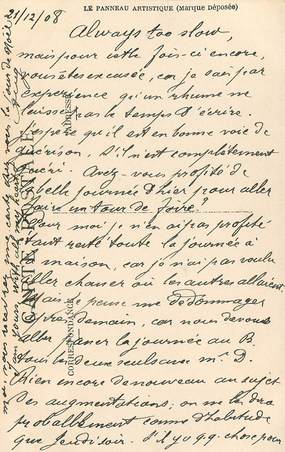 LE PANNEAU ARTISTIQUE (Marque Déposée)
21/12/08
Always too slow,
mais pour cette fois-ci encore,
vous êtes excusée, car je sais par
expérience qu'un rhume ne
laisse pas le temps d'écrire.
J'espère qu'il est en bonne voie de
guérison, s'il n'est complètement
guéri. Avez-vous profité de
belle journée d'hier pour aller
faire un tour de foire?
Pour moi je n'en ai pas profité
resté toute la journée à
maison, car je n'ai pas voulu
aller où les autres allaient.
je pense me dédommager
après demain, car nous devons
aller la journée au B.
tous les deux seuls avec Mr D.
Rien encore de nouveau au sujet
des augmentations, on me le dira
probablement comme d'habitude
que jeudi soir. S'il y a q.q. chose pour
CARTE POSTALE
CORRESPONDANCE
ADRESSE